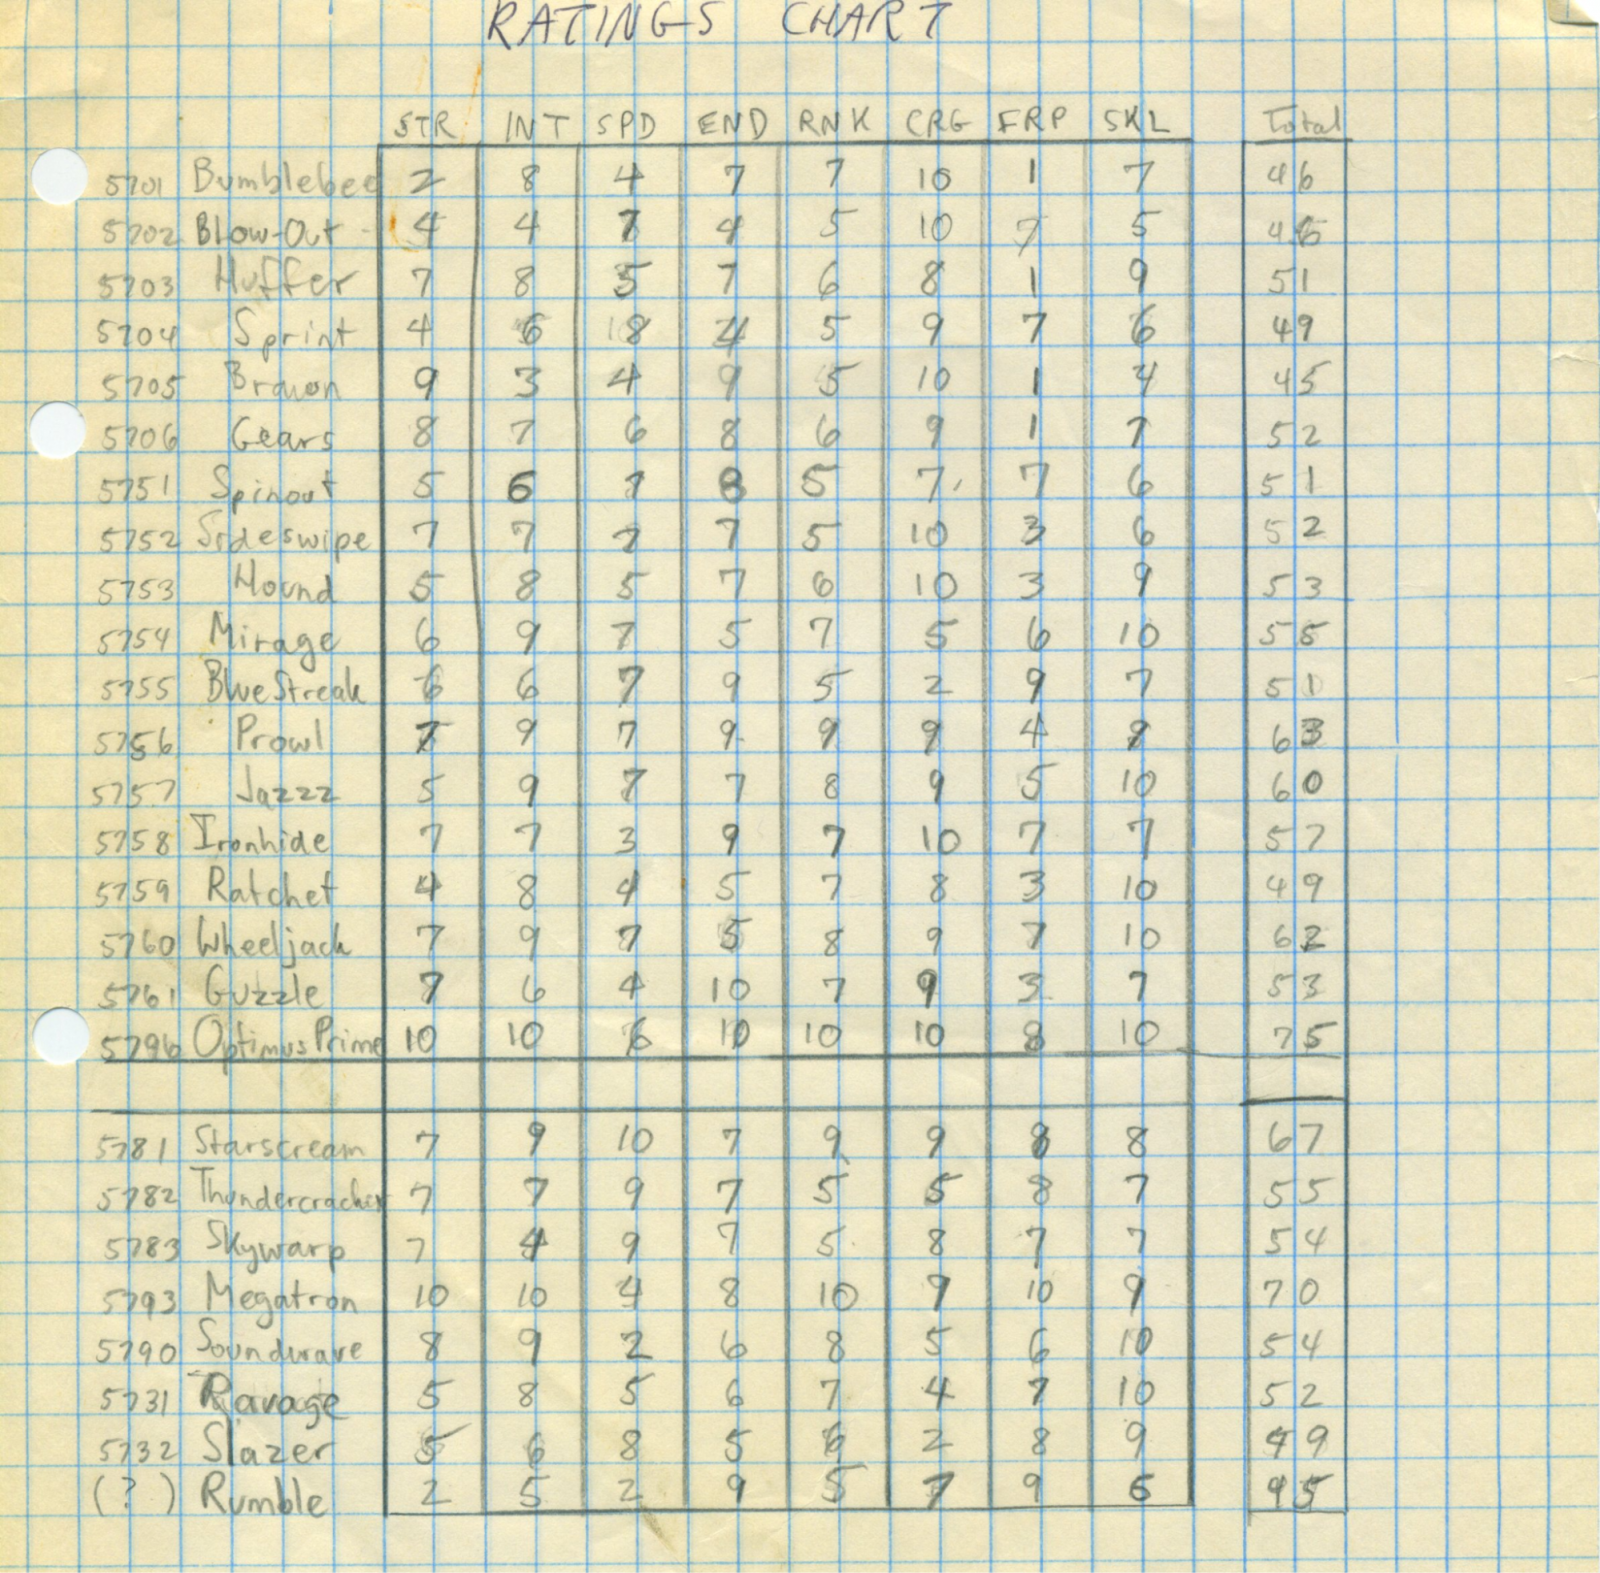 RATINGS CHART
STR INT SPD END RNK CRG FRP SKL Total
5701 Bumblebee 2 8 4 7 7 10 1 7 46
5702 Blow-Out 4 4 7 4 5 10 7 5 46
5703 Huffer 7 8 5 7 6 8 1 9 51
5704 Sprint 4 6 8 4 5 9 7 6 49
5705 Brawn 9 3 4 9 5 10 1 4 45
5706 Gears 8 7 6 8 6 9 1 7 52
5751 Spinout 5 6 7 8 5 7 7 6 51
5752 Sideswipe 7 7 7 7 5 10 3 6 52
5753 Hound 5 8 5 7 6 10 3 9 53
5754 Mirage 6 9 7 5 7 5 6 10 55
5755 BlueStreak 6 6 7 9 5 2 9 7 51
5756 Prowl 7 9 7 9 9 9 4 9 63
5757 Jazzz 5 9 7 7 8 9 5 10 60
5758 Ironhide 7 7 3 9 7 10 7 7 57
5759 Ratchet 4 8 4 5 7 8 3 10 49
5760 Wheeljack 7 9 7 5 8 9 7 10 62
5761 Guzzle 7 6 4 10 7 9 3 7 53
5796 Optimus Prime 10 10 10 10 10 8 10 75
5781 Starscream 7 9 10 7 9 9 8 8 67
5782 Thundercracker 7 7 9 7 5 5 8 7 55
5783 Skywarp 7 4 9 7 5 8 7 7 54
5793 Megatron 10 10 4 8 10 9 10 9 70
5790 Soundwave 8 9 2 6 8 5 6 10 54
5731 Ravage 5 8 5 6 7 4 7 10 52
5732 Slazer 5 6 8 5 6 2 8 9 49
(?) Rumble 2 5 2 9 5 7 9 6 45